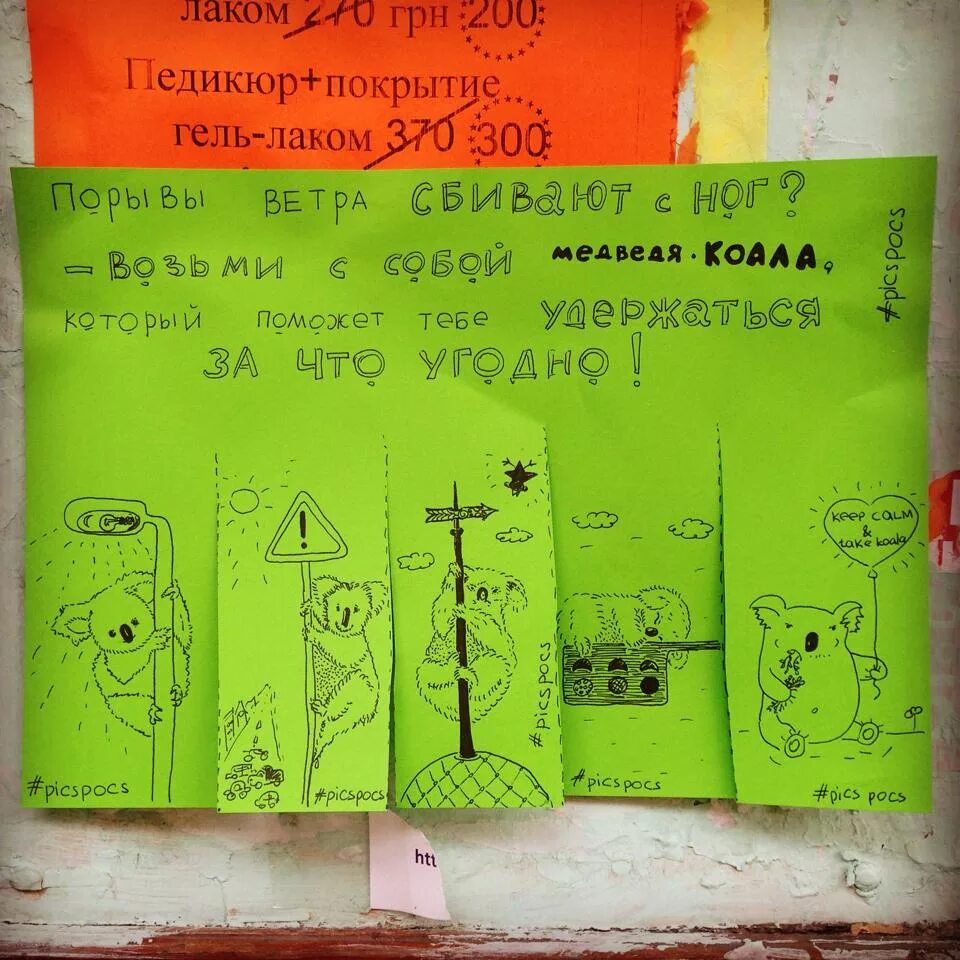 лаком 270 грн 200
Педикюр+покрытие
гель-лаком 370 300
Порывы ветра сбивают с ног?
– Возьми с собой медведя·КОАЛА,
который поможет тебе удержаться
за что угодно!
#picspocs
!
KEEP CALM
&
take koala
#picspocs
#picspocs
#picspocs
#picspocs
#pics pocs
htt